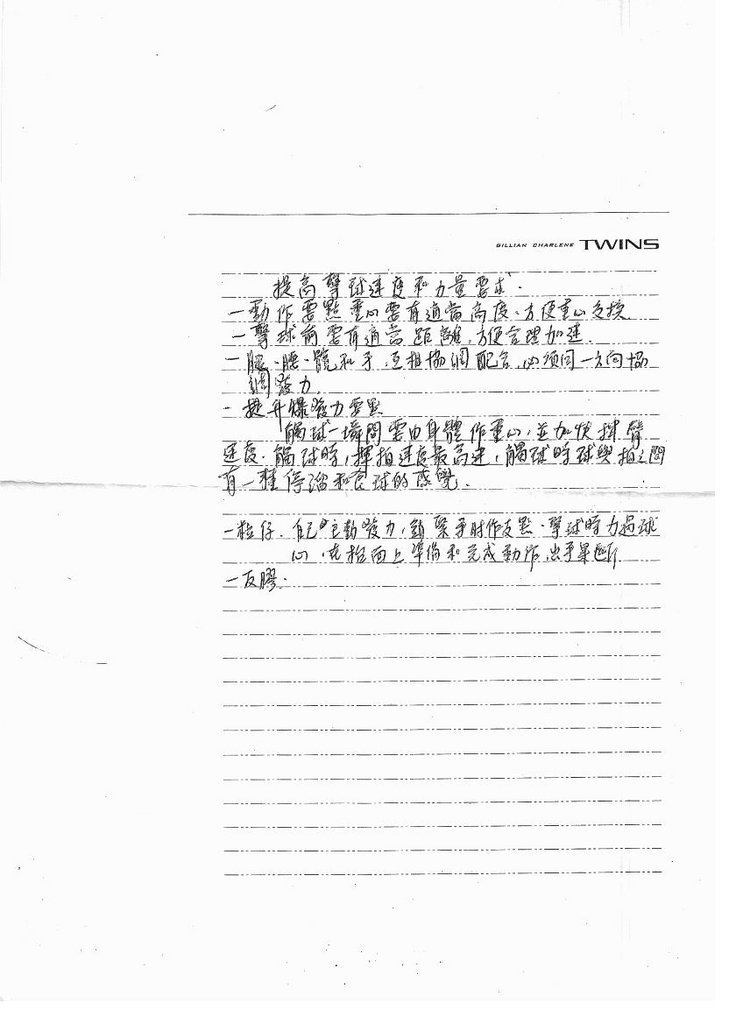 GILLIAN CHARLENE TWINS
提高擊球速度和力量要求.
一動作要點重心要有適當高度、方便重心交換
一擊球前要有適當距離,方便合理加速.
一腿、腰、髖和手,互相協調配合,必須同一方向協
調發力.
- 提升爆發力要點
觸球一瞬間要由身體作重心,並加快揮臂
速度.觸球時,揮拍速度最高速,觸球時球與拍之間
有一種停留和食球的感覺.
一粒仔.自己主動發力,手肘作支點、擊球時力過球
心,在拍面上準備和完成動作,出手果斷
一反膠.